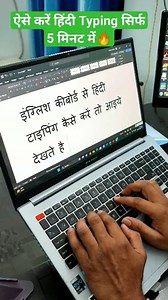 ऐसे करें हिंदी Typing सिर्फ
5 मिनट में🔥
इंग्लिश कीबोर्ड से हिंदी
टाइपिंग कैसे करें तो आइये
देखते है